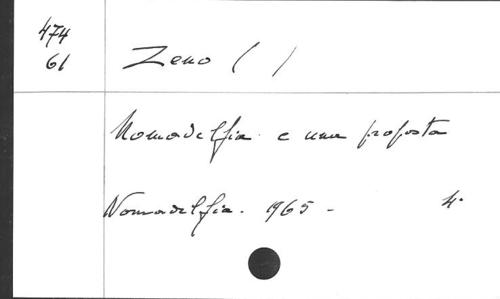 474
61
Zeno ( )
Nomadelfia e una proposta
Nomadelfia. 1965 - 4°